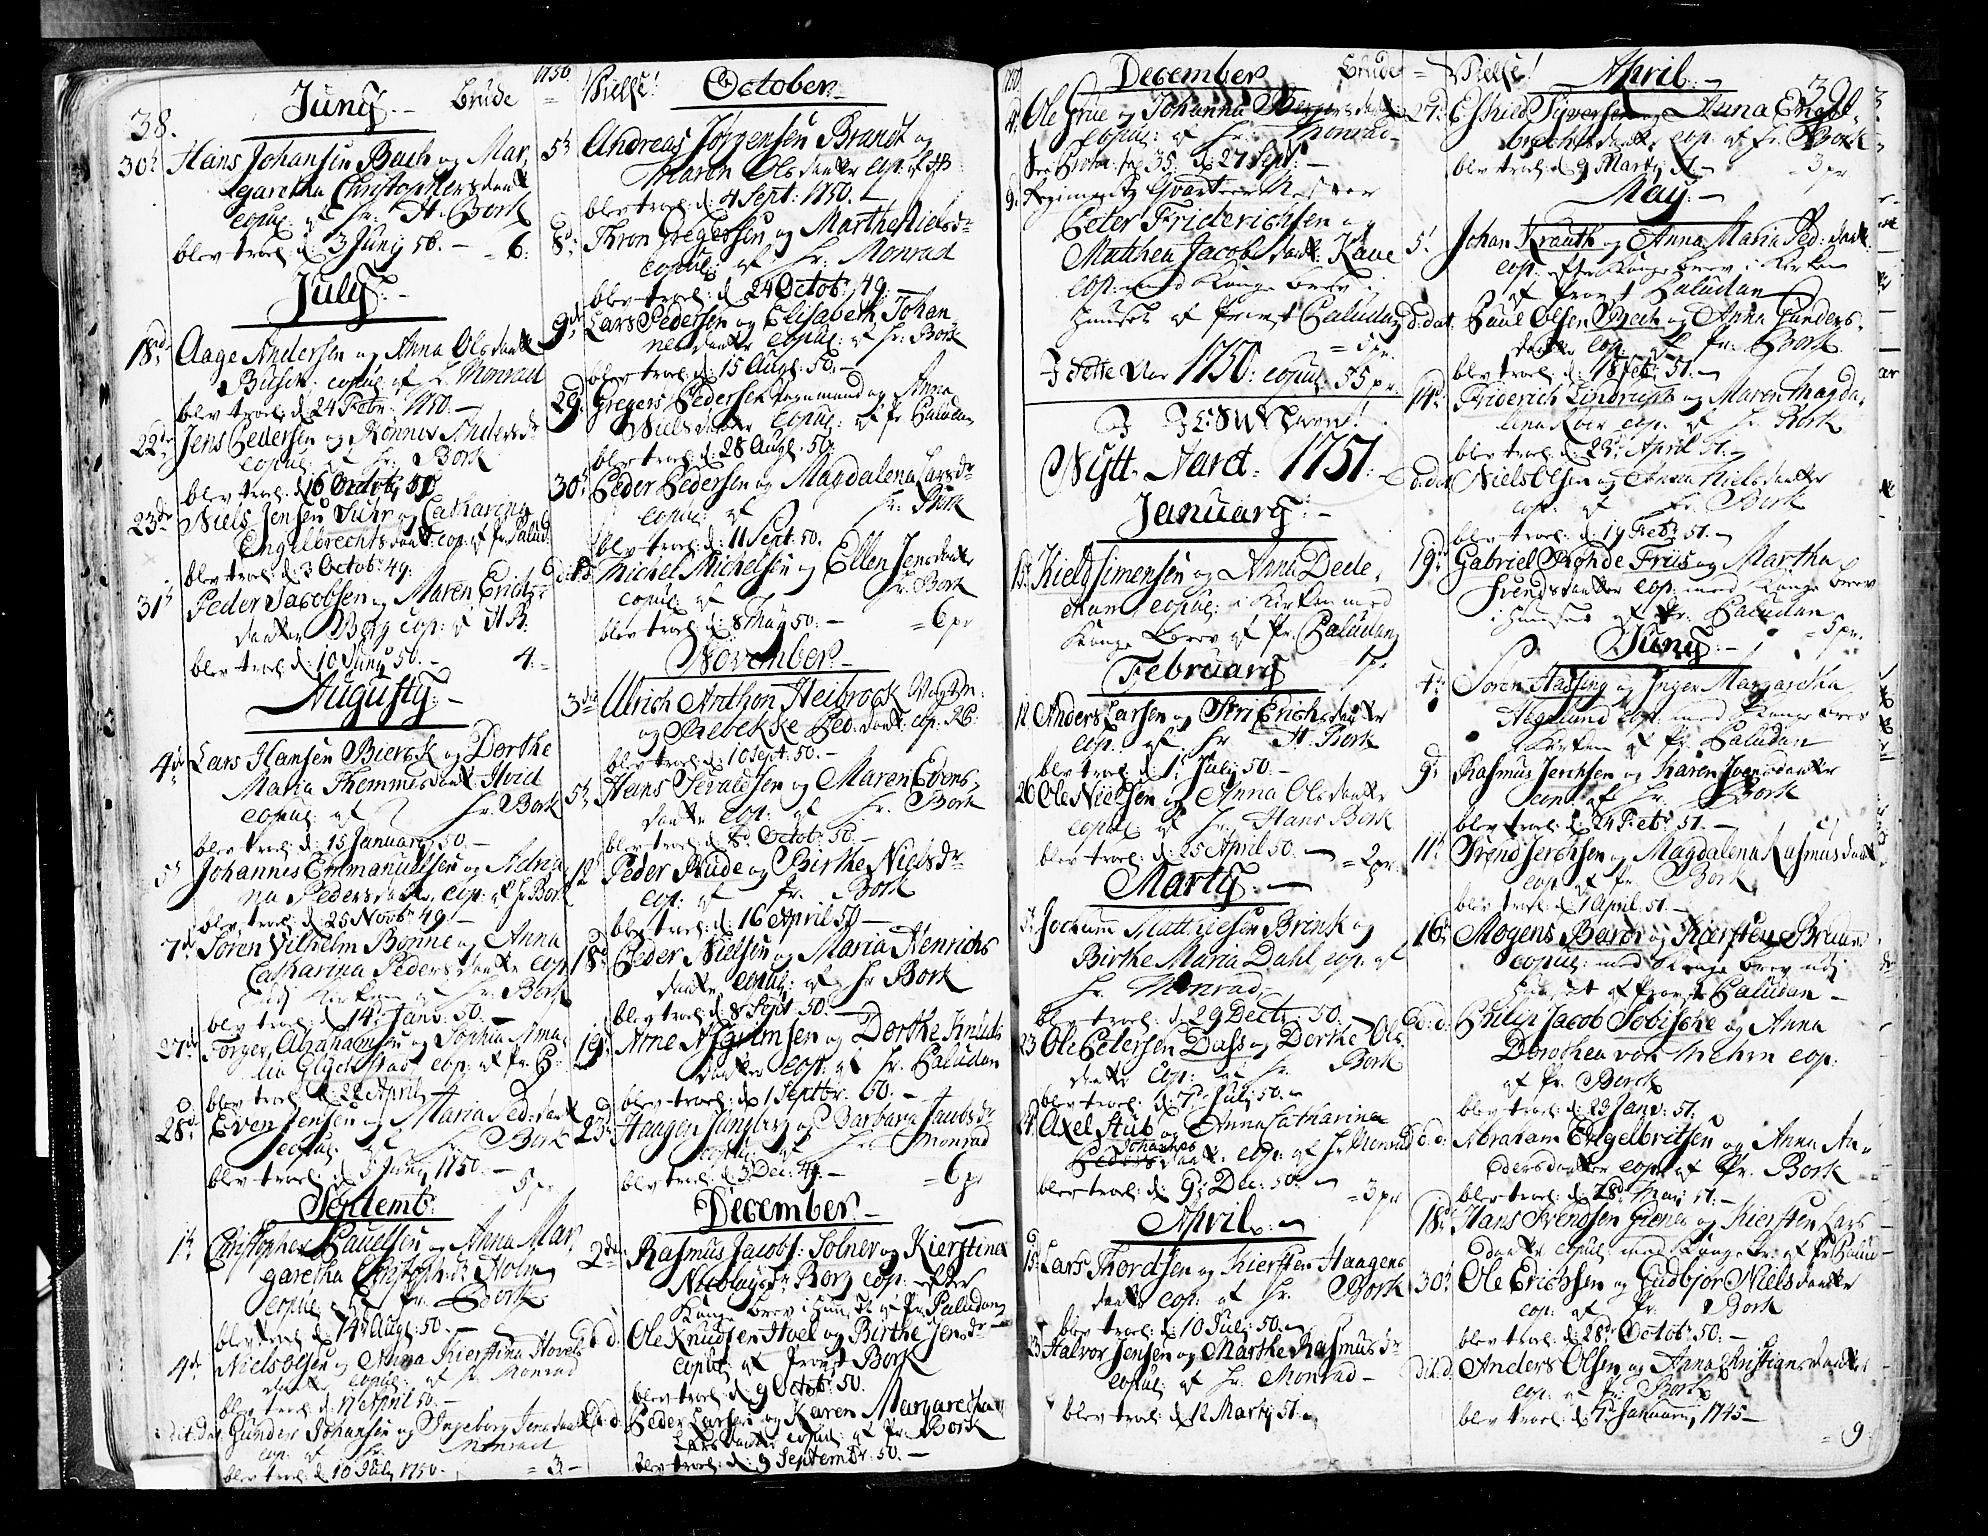 38.
Junÿ. Brude
30t Hans Johansen Bach og Mar,
garetha Christophersdaatt
copul: af Hr: H: Bork
blev trol: d: 3 Junÿ 50. — 6:
Julÿ:
18nd Aage Andersen og Anna Olsdaatt
Busch: copul af Hr. Monrad
blev trol: d: 24 Febr: 1750.
22de Jens Pedersen og Rønnov Andersdr
copul: af Hr: Bork
blev trol: d: 16 Octob: 50
23de Niels Jensen Suhr og Catharina
Engelbrechtsdaatt: cop: af Pr: Palud:
blev trol: d: 3 Octob: 49.
31t Peder Jacobsen og Maren Erichs
daatter Berg cop: af H B:
blev trol: d: 10 Junÿ 50. — 4.
Augustÿ:
4de Lars Hansen Bierck og Dorthe
Maria Thommesdaatt: Hvid
copul: af Hr: Bork
blev trol: d: 15 Januarÿ 50.
5t Johannes Emmanuelsen og Adria
na Pedersdaatter cop: af Hr Bork
blev trol: d: 25 Novbr 49.
7de Søren Vilhelm Bonne og Anna
Catharina Pedersdaatter cop
udj Kirken af Hr: Bork
blev trol: d: 14 Janv: 50.
27de Torger Abrahamsen og Sophia Ama,
lia Glyckstad cop: af Pr: P:
blev trol: d: 22 April
28de Even Jensen og Maria Ped:daatt
copul: af Hr Bork
blev trol: d: 5 Junÿ 1750. — 5 pr
Septemb:
1t Christopher Pauelsen og Anna Mar,
garetha Christoph:dr Holm
copul: af Pr. Bork
blev trol: d: 14 Augl: 50.
4de Niels Olsen og Anna Kierstina Hovels
daatter copul: af Hr Monrad
blev trol: d: 17 April 50.
dit: Dat Gunder Johansen og Ingeborg Jensdaatt
cop: af Hr: Monrad
blev trol: d: 10 Julÿ 1750. = 3.
1750. Vielse! October
5t Andreas Jørgensen Brandt og
Maren Olsdaatter cop: af HB:
blev trol: d: 4 Sept: 1750.
8de Thron Gregersen og Marthe Nielsdr
copul: af Hr: Monrad
blev trol: d: 24 Octob: 49.
9de Lars Pedersen og Elisabeth Johan,
nesdaatter copul: af Hr: Bork
blev trol: d: 15 Augl: 50.
29. Gregers Pedersen og Anna
Nielsdaatter copul: af Pr Paludan
blev trol: d: 28 Augl: 50.
30t Peder Pedersen og Magdalena Larsdr
copul: af Hr: Bork
blev trol: d: 11 Sept: 50.
dit: D Michel Michelsen og Ellen Jensdaatt
copul: af Hr: Bork
blev trol: d: 8 Maÿ 50. = 6 pr
November
3die Ulrich Anthon Heibrock Vagtm:
og Rebekke Ped:daatt: cop: HB:
blev trol: d: 10 Sept: 50.
5t Hans Sevaldsen og Maren Evens,
daatter cop: af Hr: Bork
blev trol: d: 8 Octob: 50.
12 Peder Rude og Birthe Nielsdr
cop: af Pr. Bork
blev trol: d: 16 April 50
18d Peder Nielsen og Maria Henrichs
daatter copul: af Hr Bork
blev trol: d: 8 Sept 50.
19de Arne Asgrimsen og Dorthe Knuds
daatter cop: af Hr. Paludan
blev trol: d: 1 Septbr: 50.
23de Haagen Jangberg og Barbara Jacobsdr
copul: af Hr: Monrad
blev trol: d: 3 Dec: 49. = 6 pr
December
2den Rasmus Jacobs: Solner og Kierstina
Nicolaysdr Borg cop: efter
Konge brev i Huuset af Pr Paludan
d: d: Ole Knudsen Hoel og Birthe Jensdr
copul: af Provst Bork
blev trol: d: 9 Octob: 50.
d: d: Peder Larsen og Karen Margaretha
Larsdaatter copul: af Pr: Bork
blev trol: d: 9 Septembr: 50.
1750 December Brude
4. Ole Grue og Johanna Bergersdaatt
copul: af Hr: Monrad
See Proto: pag 35. d: 27 Sept:
9. Regiments Qvarteer Mester
Peter Friderichsen og
Matthea Jacobsdaatt: Kaae
cop: med Konge brev i
Huuset af Provst Paludan
= 5 pr.
I dette Aar 1750: copul: 55 pr.
I JESU Navn!
Nÿtt. Aaret. 1751.
Januarÿ:
15. Kield Simensen og Anna Dede,
kam copul: i Kirken med
Konge Brev af Pr. Paludan
1 pr
Februarÿ
12. Anders Larsen og Siri Erichsdaatter
cop: af Hr H: Bork
blev trol: d: 1 Julÿ 50.
26 Ole Nielsen og Anna Olsdaatter
copul: af Hr: Hans Bork
blev trol: d: 25 April 50. = 2 pr.
Martÿ:
5t Jochum Matthiesen Brink og
Birthe Maria Dahl cop: af
Hr. Monrad,
blev trol: d: 29 Decbr: 50.
23 Ole Pedersen Dass og Dorthe Ols,
daatter cop: af Hr: Bork
blev trol: d: 7 Julÿ 50.
24. Axel Stub og Anna Catharina
Johannes
Pedersdaatt. cop: af Hr Monrad
blev trol: d: 9 Dec: 50. = 3 pr
April:
15 Lars Thordsen og Kiersten Haagens
daatter cop: af Hr: Bork
blev trol: d: 10 Julÿ 50.
23 Halvor Jensen og Marthe Rasmusdr
copul: af Hr: Monrad
blev trol: d: 12 Martÿ 51.
= Vielse! April: 39
27de Eskild Syversen og Anna Engel,
brechtsdaatter cop: af Hr. Bork
blev trol: d: 9 Martÿ 51 = 3 pr.
Maÿ:
5t Johan Krauth og Anna Maria Ped: daatt.
cop: efter Konge brev i Kirken
af Provst Paludan
d: dat Paul Olsen Bech og Anna Gunders,
daatter cop: af Hr: Bork
blev trol: d: 18 Feb: 51.
14d Friderich Lindrupp og Maren Magda,
lena Koer cop: af Hr. Bork
blev trol: d: 23 April 51.
d: dat Niels Olsen og Anna Nielsdaatter
cop: af Hr. Bork
blev trol: d: 19 Febr: 51.
19d Gabriel Rohde Friis og Martha
Svendsdaatter cop: med Konge brev
i Huuset af Pr. Paludan
= 5 pr.
Junÿ:
4de Søren Hassing og Inger Margaretha
Neglund cop: med Konge brev
i Kirken af Pr: Paludan
9d Rasmus Jerichsen og Karen Joensdaatter
cop: af Hr. Bork
blev trol: d: 24 Feb: 51.
11t Trond Jerichsen og Magdalena Rasmusdaatt
cop: af Pr. Bork,
blev trol: d: 1 April 51.
16d Mogens Barth og Kiersten Bruun
copul: med Konge brev udj
Huuset af Provst Paludan
d: d: Philip Jacob Sobischke og Anna
Dorothea von Mehrn cop:
af Pr. Borck
blev trol: d: 23 Janv: 51.
d: d: Abraham Engelbritsen og Anna An,
dersdaatter cop: af Pr. Bork
blev trol: d: 28 Maÿ 51.
18d Hans Svendsen Giene og Kiersten Lars
daatter copul: med Konge br: af Pr Palud
30t Ole Erichsen og Gudbjor Nielsdaatter
cop: af Pr. Bork
blev trol: d: 28 Octob: 50.
dit: d. Anders Olsen og Anna Christiansdaatter
cop: af Pr: Bork
blev trol: d: 7 Januarÿ 1745
= 9